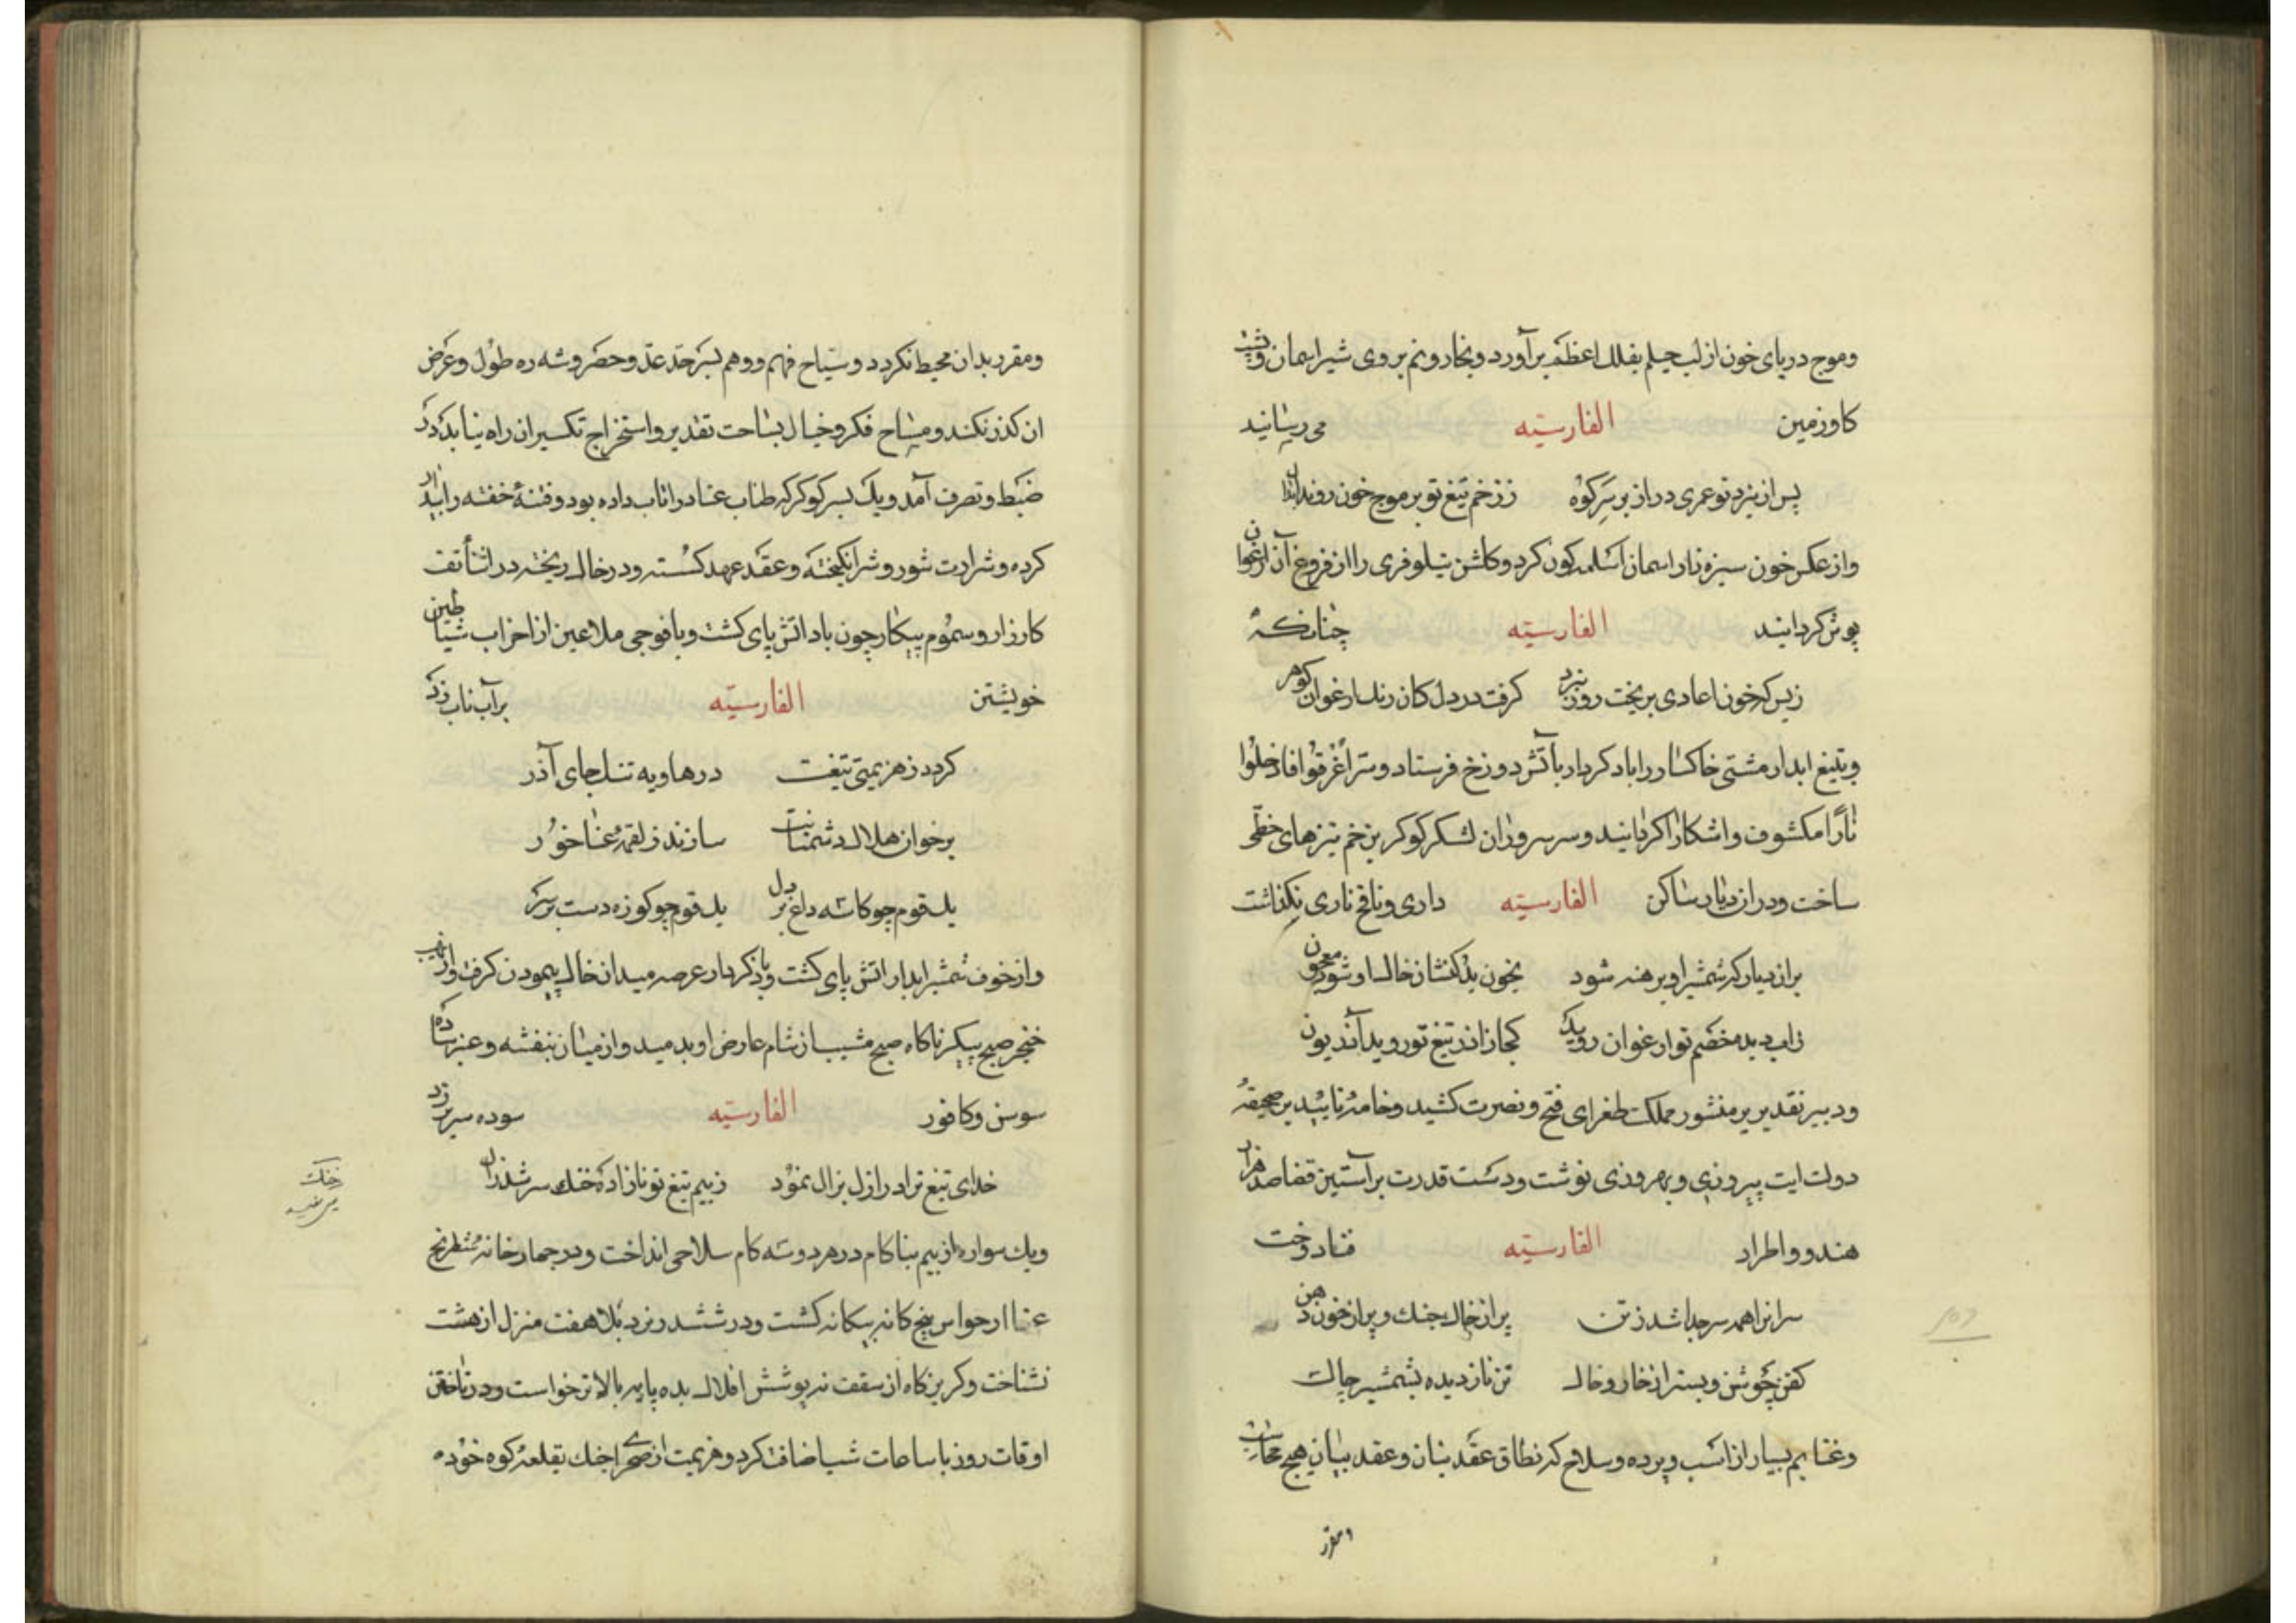 وموج دریای خون از لب جیلم بفلك اعظم برآورد وبخار ونم بروی شیر اسمان وپشت
كاو زمین الفارسیّه می رسانید
پس از نبرد تو عمری دراز بر سر كوه ز زخم تیغ تو بر موج خون روند
واز عكس خون سبزه زار اسمان كون كرد وكلشن نیلوفری را از فروغ آن ارغوان
پوش كردانید الفارسیّه چنانكه
ز بس كه خون اعادی بریخت روز نبرد كرفت در دل كان رنك ارغوان كوهر
وبتیغ ابدار مشتی خاكسار را باد كردار بآتش دوزخ فرستاد وسرّ اُغْرِقُوا فَاُدْخِلُوا
نَارًا مكشوف واشكارا كردانید وسر سروران لشكر كوكر بزخم نیزهای خطّی
ساخت ودر ان دیار ساكن الفارسیّه داری ونافخ ناری نكذاشت
بران دیار كه شمشیر او برهنه شود بخون بدكنشان خاك او شود معجون
زاب دیده خصم تو ارغوان روید كجا ز اذر تیغ تو روید آذریون
ودبیر تقدیر بر منشور مملكت طغرای فتح ونصرت كشید وخامه تایید بر صحیفه
دولت ایت پیروزی وبهروزی نوشت ودست قدرت بر آستین قضا صد هزار
هندو واطراد الفارسیّه فنا دوخت
سرانرا همه سر جدا شد ز تن پر از خاك چنك وپر از خون دهن
كفن جوشن وبستر از خار وخاك تن نازدیده بشمشیر چاك
وغنایم بسیار از اسب وبرده وسلاح كه نطاق عقد بنان وعقد بیان هیچ محاسب
ومقرر
ومقرر بدان محیط نكردد وسیّاح فهم ووهم بسرحد عدّ وحصر وشه ره طول وعرض
ان كذر نكند ومسّاح فكر وخیال بساحت تقدیر واستخراج تكسیر ان راه نیابد در
ضبط وتصرف آمد ویك پسر كوكر كه طناب عنا درا تاب داده بود وفتنهٔ خفته را بیدار
كرده وشرارت شور وشر انكیخته وعقد عهد كسسته ودر خاك ریخته در اثنأ تف
كارزار وسموم پیكار چون باد اتش پای كشت وبا فوجی ملاعین از احزاب شیاطین
خویشتن الفارسیّه بر آب ناب زد
كردد ز هزیمتی تیغت در هاویه تنك جای آذر
بر خوان هلاك دشمنانت سازند ز لقمه عنا خور
یك قوم چو كاسه داغ بر دل یك قوم چو كوزه دست بر سر
واز خوف شمشیر ابدار اتش پای كشت وباذ كردار عرصه میدان خاك پیمودن كرفت واز نهیب
خنجر صبح پیكر ناكاه صبح مشیب از شام عارض او بدمید واز میان بنفشه وعنبر ساده
سوسن وكافور الفارسیّه سوده سر بر زد
خدای تیغ ترا در ازل بزال نمود ز بیم تیغ تو نازاده خنك سر شد زال
خنك
ویك سواره از بیم بناكام در هر دو سه كام سلاحی انداخت ودر جهار خانه شطرنج
عنا از حواس پنج كانه بیكانه كشت ودر ششدر نرد بلا هفت منزل از هشت
نشناخت وكریزكاه از سقف نه پوشش افلاك بده پایه بالاتر خواست ودر تاختن
اوقات روز با ساعات شب اضافت كرد وهزیمت از صحرا جنك بقلعه كوه خود